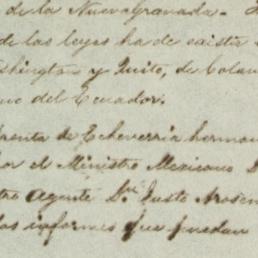 de la Nueva Granada.
de las leyes ha de existir
shington y Quito, de Colom
no del Ecuador.
prenta de Echeverria herman
or el Ministro Mexicano D
tro agente Dn. Justo Arosem
los informes que puedan